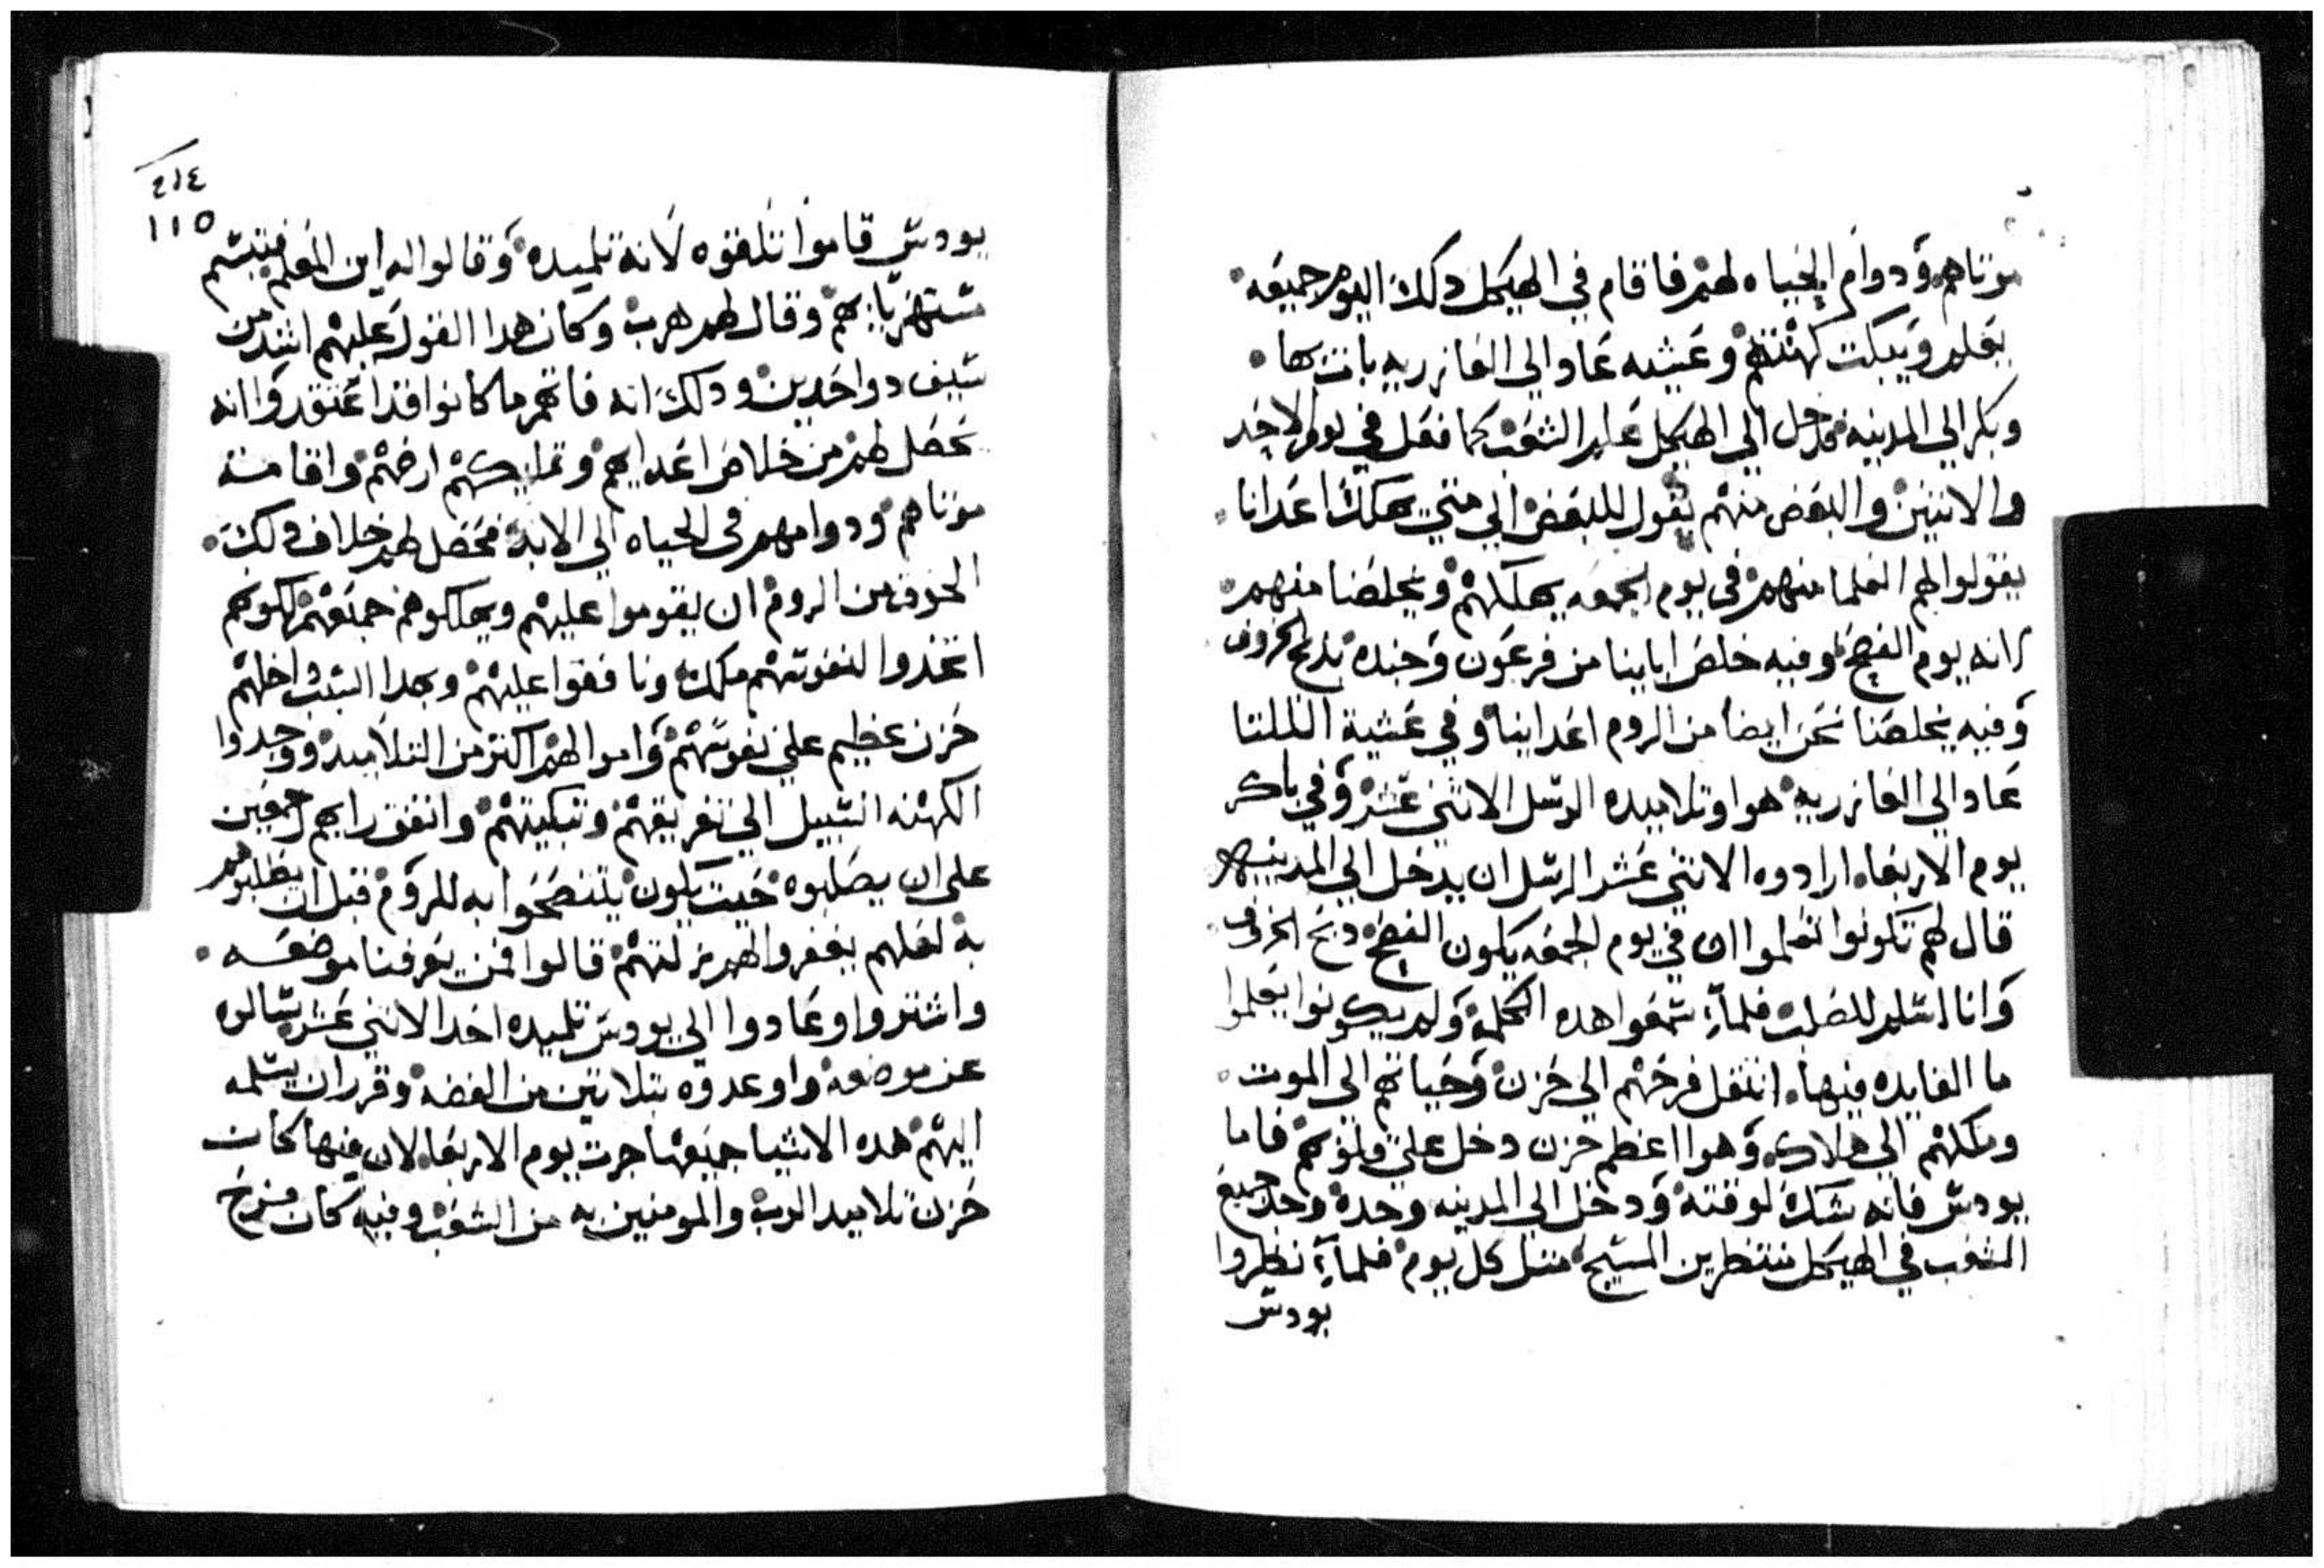 موتاهم ودوام الحياه لهم فاقام في الهيكل دلك اليوم جميعه
يعلم ويبكت كهنتهم وعشيه عاد الي العازريه بات بها
وبكر الي المدينه فدخل الي الهيكل علم الشعب كما فعل في يوم الاحد
والاتنين والبعض منهم يقول للبعض الي متي يهلك اعدانا
يقولوا لهم العلما منهم في يوم الجمعه يهلكهم ويخلصنا منهم
لانه يوم الفصح وفيه خلص ابايـنا من فرعون وجنده بدبح الخروف
وفيه يخلصنا نحن ايضا من الروم اعداينا وفي عشية التلتا
عاد الي العازريه هوا وتلاميده الرسل الاتني عشر وفي باكر
يوم الاربعا ارادوه الاتني عشر الرسل ان يدخل الي المدينه
قال لهم تكونوا تعلموا ان في يوم الجمعه يكون الفصح دبح الخروف
وانا اسلم للصلب فلما سمعوا هده الكلمة ولم يكونوا يعلموا
ما الفايده فيها انتقل فرحهم الي حزن وحياتهم الي الموت
وملكهم الي هلاك وهوا اعظم حزن دخل علي قلوبهم فاما
يودس فانه شكره لوقته ودخل الي المدينه وحده وجد جميع
الشعب في الهيكل منتظرين المسيح متل كل يوم فلما نظروا
يودس
٤١٤
١١٥
يودس قاموا تلقوه لانه تلميده وقالوا له اين المعلم فتبسم
مستهزيا بهم وقال لهم هرب وكان هدا القول عليهم اشد من
سيف دو احدين ودلك انه فاتهم ما كانوا قد اعتقدوا انه
يحصل لهم من خلاص اعدايهم وتمليكهم ارضهم واقامة
موتاهم ودوامهم في الحياه الي الابد فحصل لهم خلاف دلك
الخوف من الروم ان يقوموا عليهم ويهلكوهم جميعهم لكونهم
اتخدوا لنفوسهم ملك ونافقوا عليهم وبهدا السبب داخلهم
حزن عظيم علي نفوسهم واموالهم اكتر من التلاميد ووجدوا
الكهنه السبيل الي تفريقهم وتبكيتهم واتفق رايهم جمعين
علي ان يصلبوه حيت يكون يتنصحوا به للروم قبل ان يطلبوهم
به لعلهم يغفروا لهم زلتهم قالوا فمن يعرفنا موضعه
واشتروا وعادوا الي يودس تلميده احد الاتني عشر سالوه
عن موضعه واوعدوه بتلاتين من الفضه وقرر ان يسلمه
اليهم هده الاشيا جميعها جرت يوم الاربعا لان فيها كان
حزن تلاميد الرب والمومنين به من الشعب وفيه كان فرح